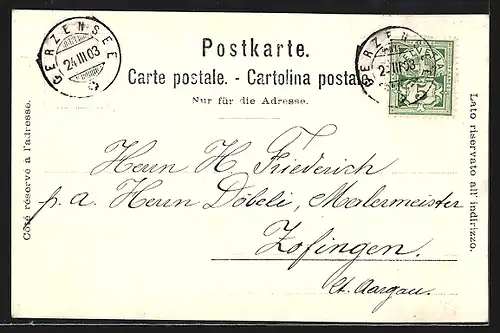 Postkarte.
Carte postale. - Cartolina postale
Nur für die Adresse.
GERZENSEE
24.III.03
GERZENSEE
III.03
5
Côté réservé à l'adresse.
Lato riservato all' indirizzo.
Herrn H. Friederich
p. a. Herrn Döbeli, Malermeister
Zofingen.
Ct. Aargau.